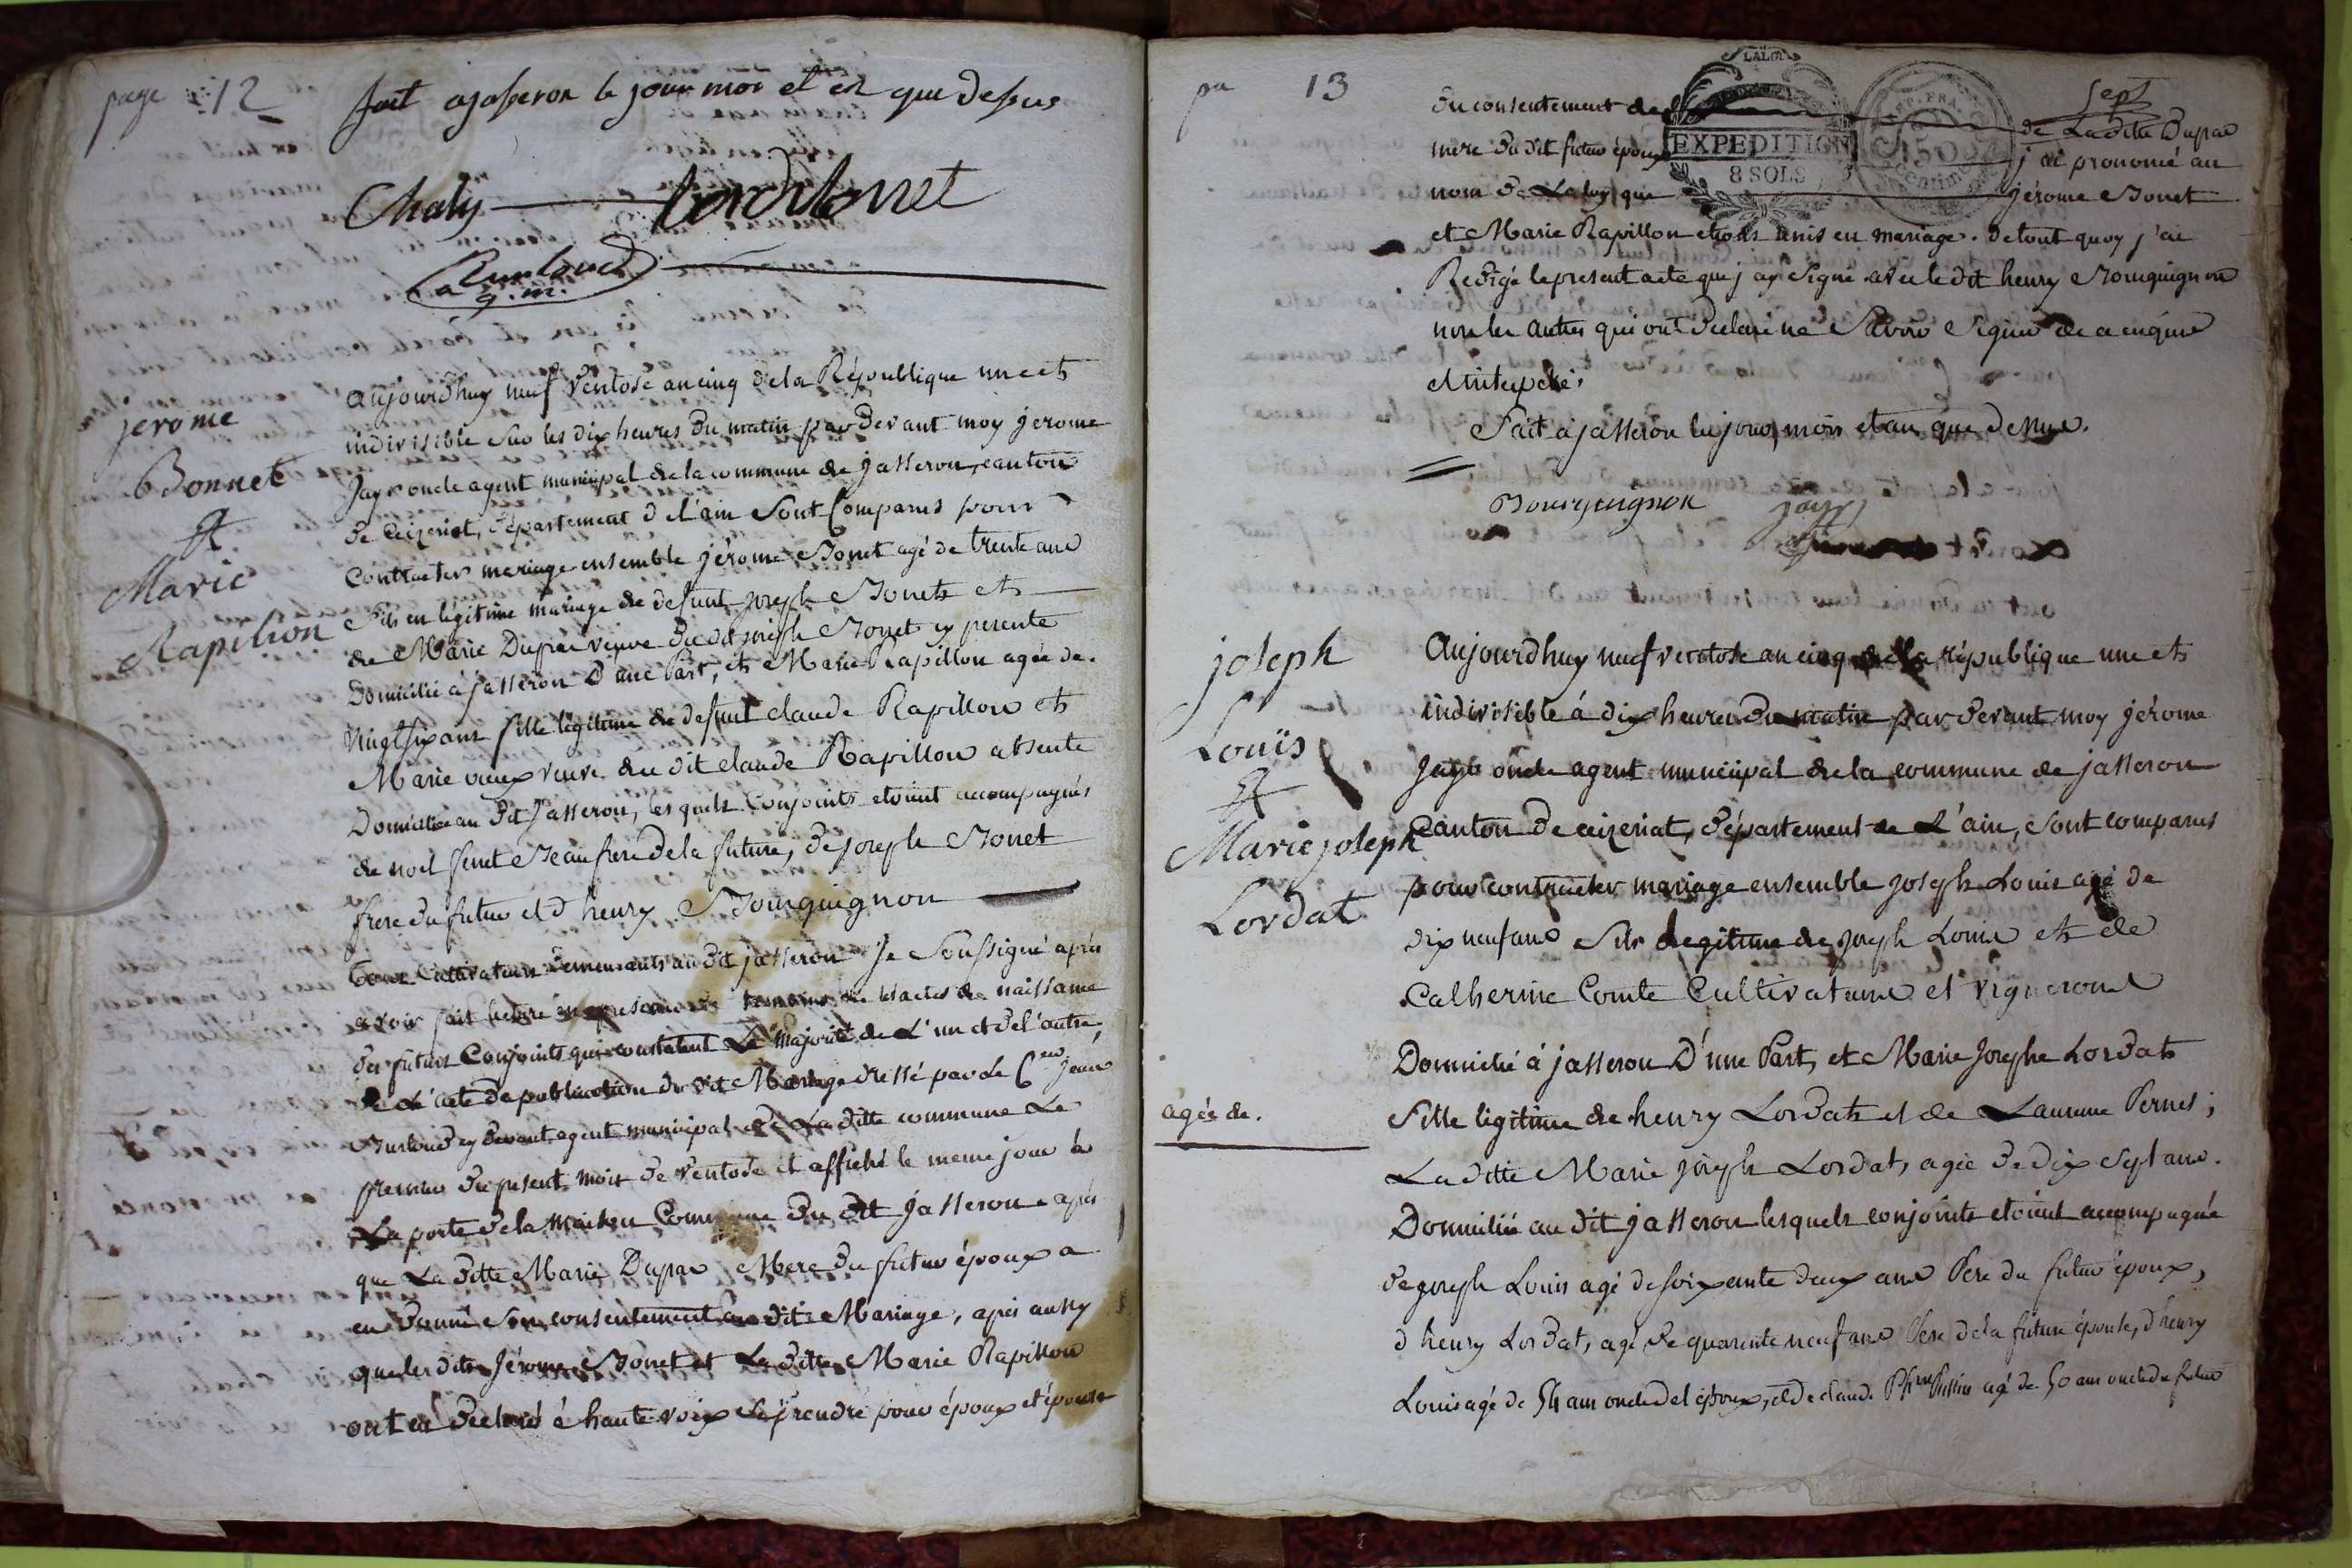 page 12
fait a jaseron le jour mois et en que desus
Chaly
a g.m.
jerome
Bonnet
et
Marie
Rapilion
aujourdhuy neuf ventose an cinq de la République une et
indivisible sur les dix heures du matin par devant moy jerome
Jayr oncle agent municipal de la commune de jasseron, canton
de Ceizeriat, département de l'ain sont Comparus pour
Contracter mariage ensemble jérome Bonet agé de trente ans
fils en légitime mariage de defunt joseph Bonet et
de Marie Dupra veuve du dit joseph Bonet cy presente
Domicilié à jasseron d'une Part, et Marie Rapillon agée de
Vingt six ans fille légitime de defunt claude Rapillon et
Marie vieux veuve du dit claude Rapillon absente
Domiciliée au dit Jasseron, lesquels Conjoints etoient accompagnés
de noel feret Beaufrere de la future, de joseph Bonet
frere du futur et d henry Bourguignon
tous Cultivateurs demeurants au dit jasseron Je soussigné après
avoir fait lecture en presence des temoins de les actes de naissance
des futurs Conjoints qui constatent La majorité de L'un et de l'autre,
de L'acte de publication du dit Mariage dressé par Le Cen jean
Burloud cy devant agent municipal de La ditte commune Le
premier du present mois de ventose et affiché le meme jour à
La porte de la maison Commune du dit jasseron après
que La ditte Marie Dupra Mere du futur époux a
eu donné son consentement au dit Mariage, après aussy
que lesdits Jérome Bonet et La ditte Marie Rapillon
ont eû declaré à haute voix se prendre pour époux et épouse
pa 13
sept
LALOI
EXPEDITION
8 SOLS
REP. FRA.
50
centim
du consentement de de Laditte Dupra
mere du dit futur époux j'ai prononcé au
nom de La loy que jérome Bonet
et Marie Rapillon etoient unis en mariage. de tout quoy j'ai
Redigé le present acte que j'ay signé avec le dit henry Bourguignon
non les autres qui ont declaré ne savoir signer de ce enquis
et interpelé.
Fait à jasseron les jour, mois et an que dessus.
Bourguignon jayr
joseph
Louïs
et
Marie joseph
Lordat
Aujourdhuy neuf ventose an cinq de la république une et
indivisible à dix heures du matin par devant moy jérome
Jayr oncle agent municipal de la commune de jasseron
Canton de ceizeriat, département de L'ain, sont comparus
pour contracter mariage ensemble joseph Louis agé de
dix neuf ans fils Legitime de joseph Louis et de
Catherine Comte Cultivateurs et vignerons
Domicilié à jasseron D'une Part, et Marie Josephe Lordat
agée de.
fille légitime de henry Lordat et de Laurence Pernet;
La ditte Marie joseph Lordat, agée de dix sept ans.
Domiciliée au dit jasseron lesquels conjoints etoient accompagnés
de joseph Louis agé de soixante deux ans Pere du futur époux,
d henry Lordat, agé de quarente neuf ans Pere de la future épouse, d henry
Louis agé de 54 ans oncle del époux, et de claude agé de 50 ans oncle du futur